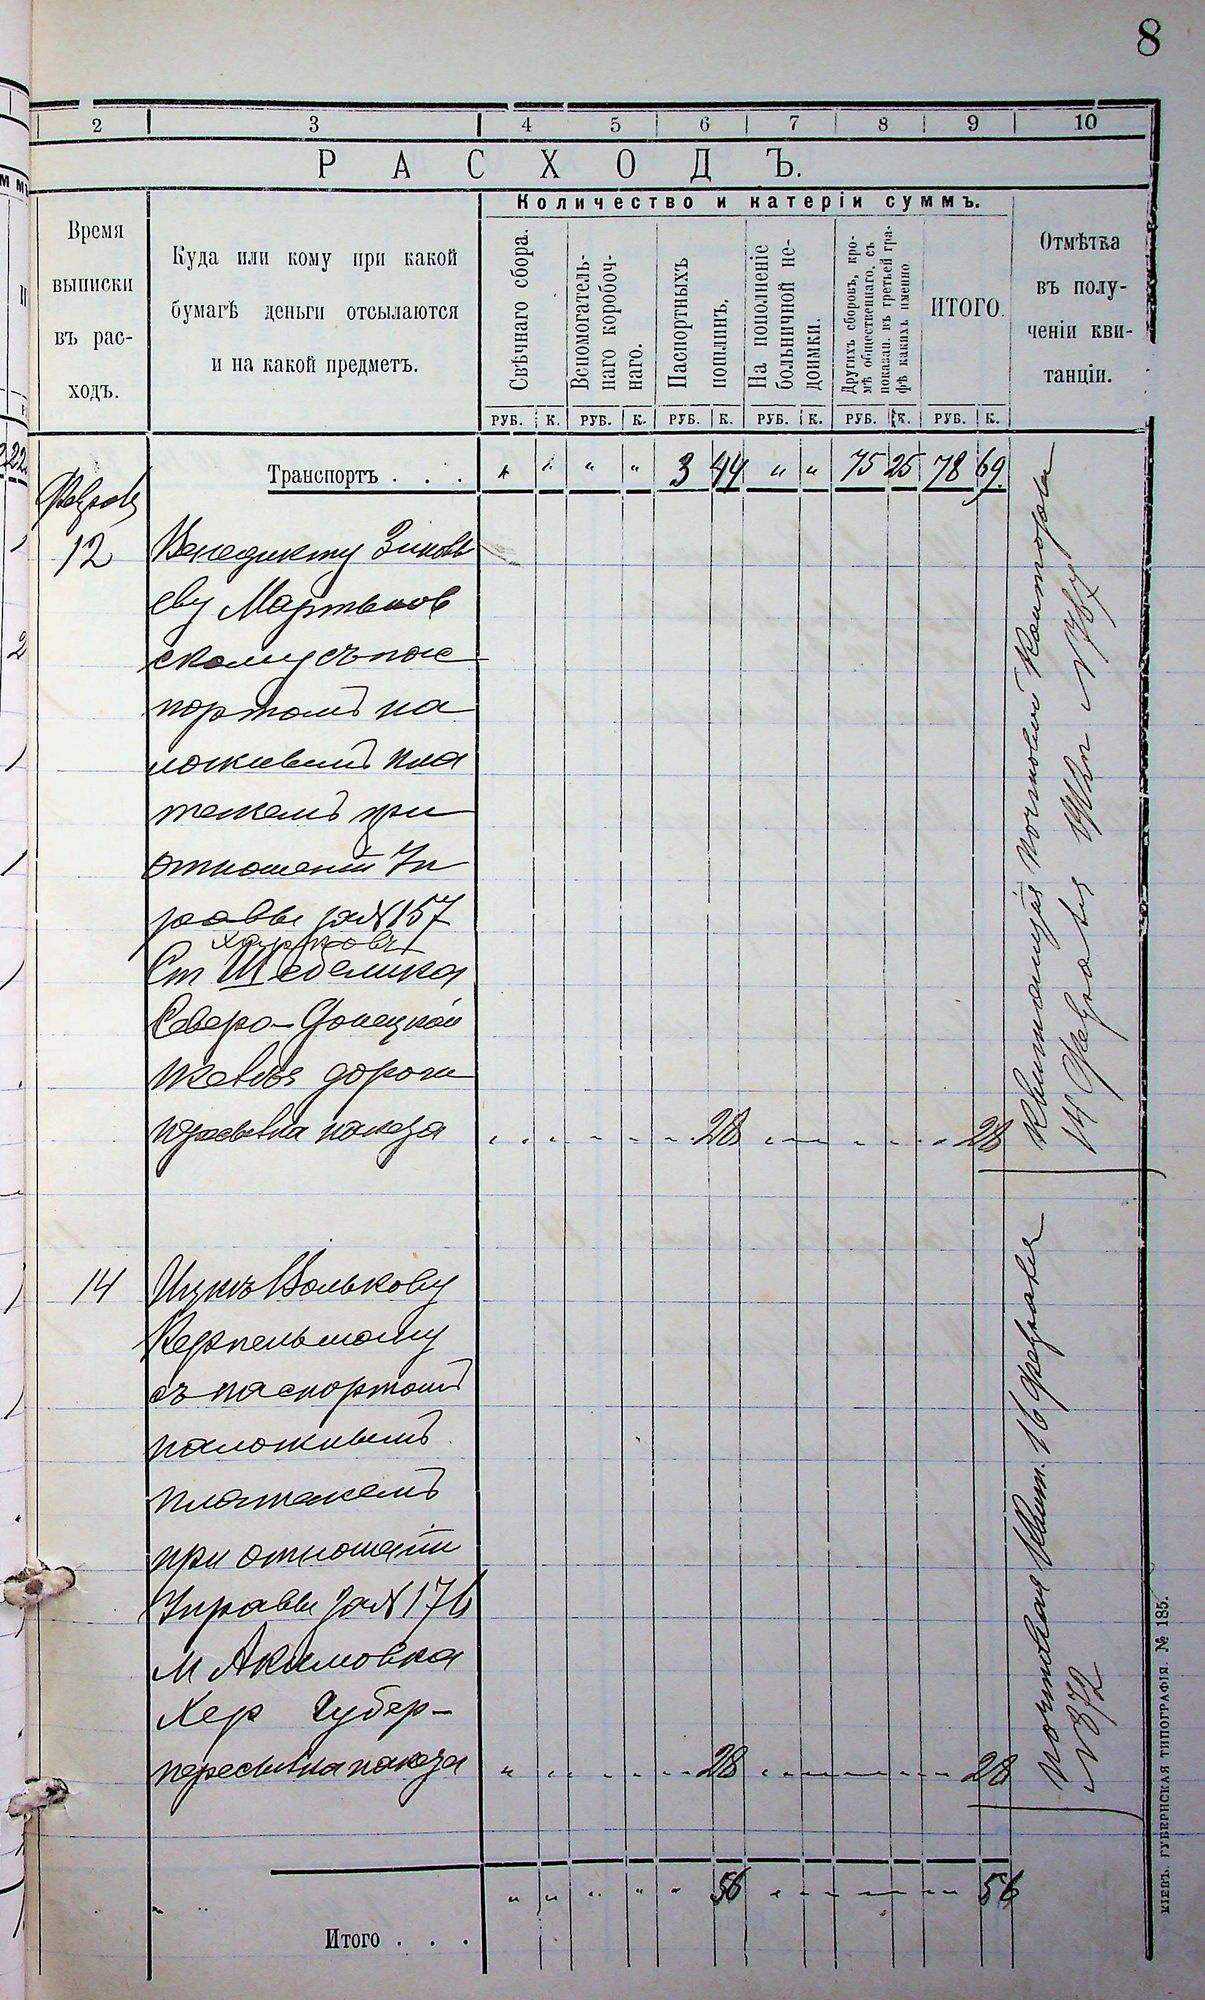 8
2 3 4 5 6 7 8 9 10
РАСХОДЪ.
Время
выписки
въ рас-
ходъ.
Куда или кому при какой
бумагѣ деньги отсылаются
и на какой предметъ.
Количество и катеріи суммъ.
Свѣчнаго сбора.
Вспомогатель-
наго коробоч-
наго.
Паспортныхъ
пошлинъ.
На пополненіе
больничной не-
доимки.
Другихъ сборовъ, кро-
мѣ общественнаго, съ
показан. въ третьей гра-
фѣ какихъ именно
ИТОГО.
Отмѣтка
въ полу-
ченіи кви-
танціи.
РУБ. К. РУБ. К. РУБ. К. РУБ. К. РУБ. К. РУБ. К.
Транспортъ . . . " " " " 3 44 " " 75 25 78 69.
12
еву Мартынов
скому съ пас
портомъ на
ложеннымъ пла
тежемъ при
отношеніи Уп
равы за № 157
Харьковъ
Ст Шебелинка
Сѣверо-Донецкой
дороги
пересылка пакета 28 28
Квитанція почтовой Конторы
14 Февраля № 767
14
Волькову
съ паспортомъ
наложеннымъ
платежемъ
при отношеніи
Управы за № 176
м Акимовка
Хер Губер-
пересылка пакета " 28 28
Почтовая Квит. 16 Февраля
№ 872
56 56
Итого . . .
КІЕВЪ. ГУБЕРНСКАЯ ТИПОГРАФІЯ. № 185.